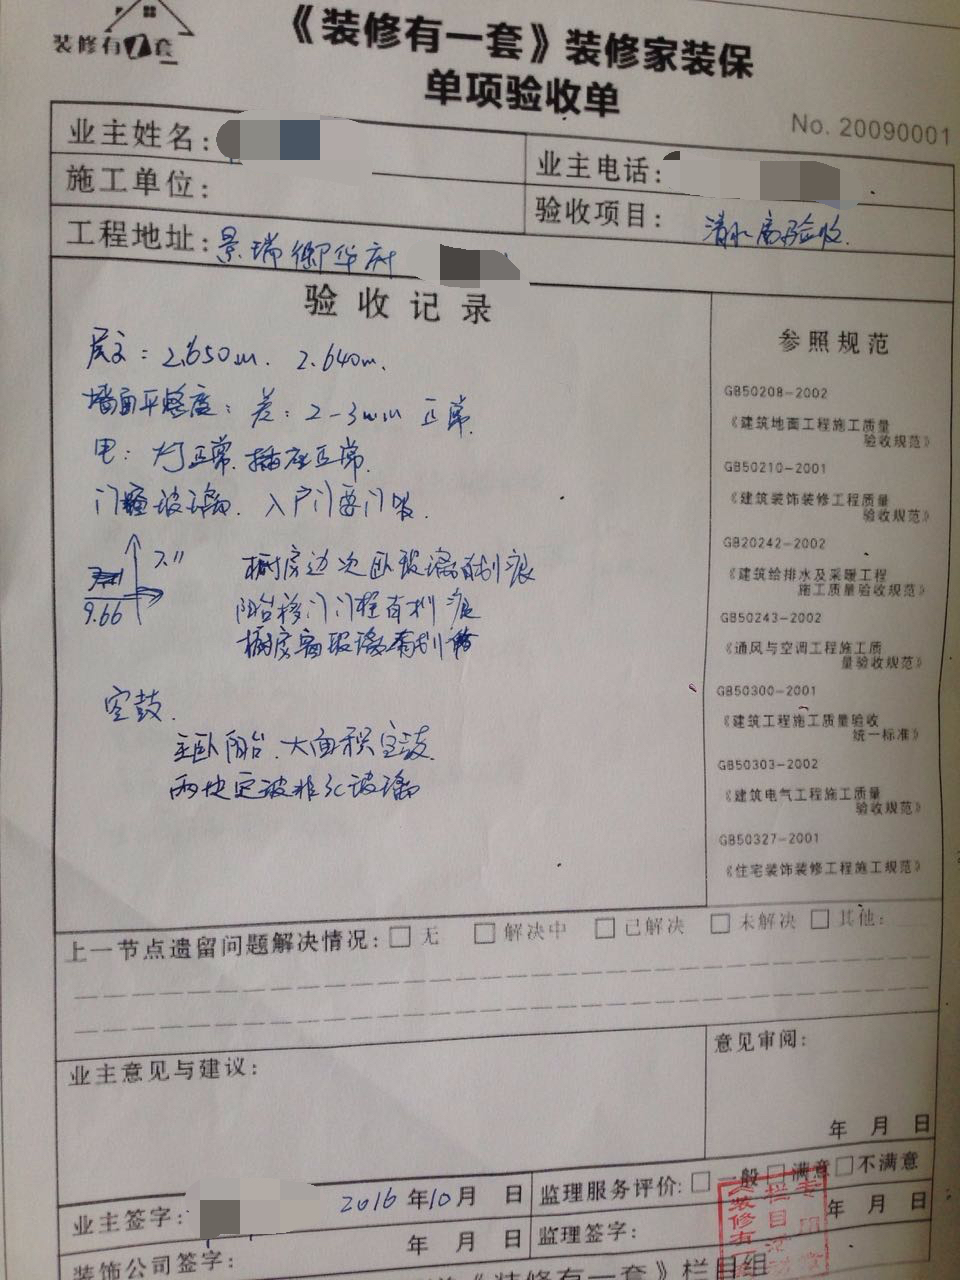 装修有一套
《装修有一套》装修家装保
单项验收单
No. 20090001
业主姓名:
业主电话:
施工单位:
验收项目: 清水房验收.
工程地址: 景瑞御华府
验收记录
层高: 2.650m. 2.640m.
墙面平整度: 差: 2-3mm 正常.
电: 灯正常. 插座正常.
门 玻璃. 入户门要门吸.
7.11
9.66
厨房边次卧玻璃有划痕
阳台移门门栏有划痕
厨房窗玻璃有划
空鼓.
主卧阳台. 大面积空鼓.
两块定玻非3C玻璃
参照规范
GB50208-2002
《建筑地面工程施工质量
验收规范》
GB50210-2001
《建筑装饰装修工程质量
验收规范》
GB20242-2002
《建筑给排水及采暖工程
施工质量验收规范》
GB50243-2002
《通风与空调工程施工质
量验收规范》
GB50300-2001
《建筑工程施工质量验收
统一标准》
GB50303-2002
《建筑电气工程施工质量
验收规范》
GB50327-2001
《住宅装饰装修工程施工规范》
上一节点遗留问题解决情况: □ 无 □ 解决中 □ 已解决 □ 未解决 □ 其他:
业主意见与建议:
意见审阅:
年 月 日
业主签字: 2016年10月 日
监理服务评价: □ 一般 □ 满意 □ 不满意
装饰公司签字: 年 月 日
监理签字: 年 月 日
《装修有一套》栏目组